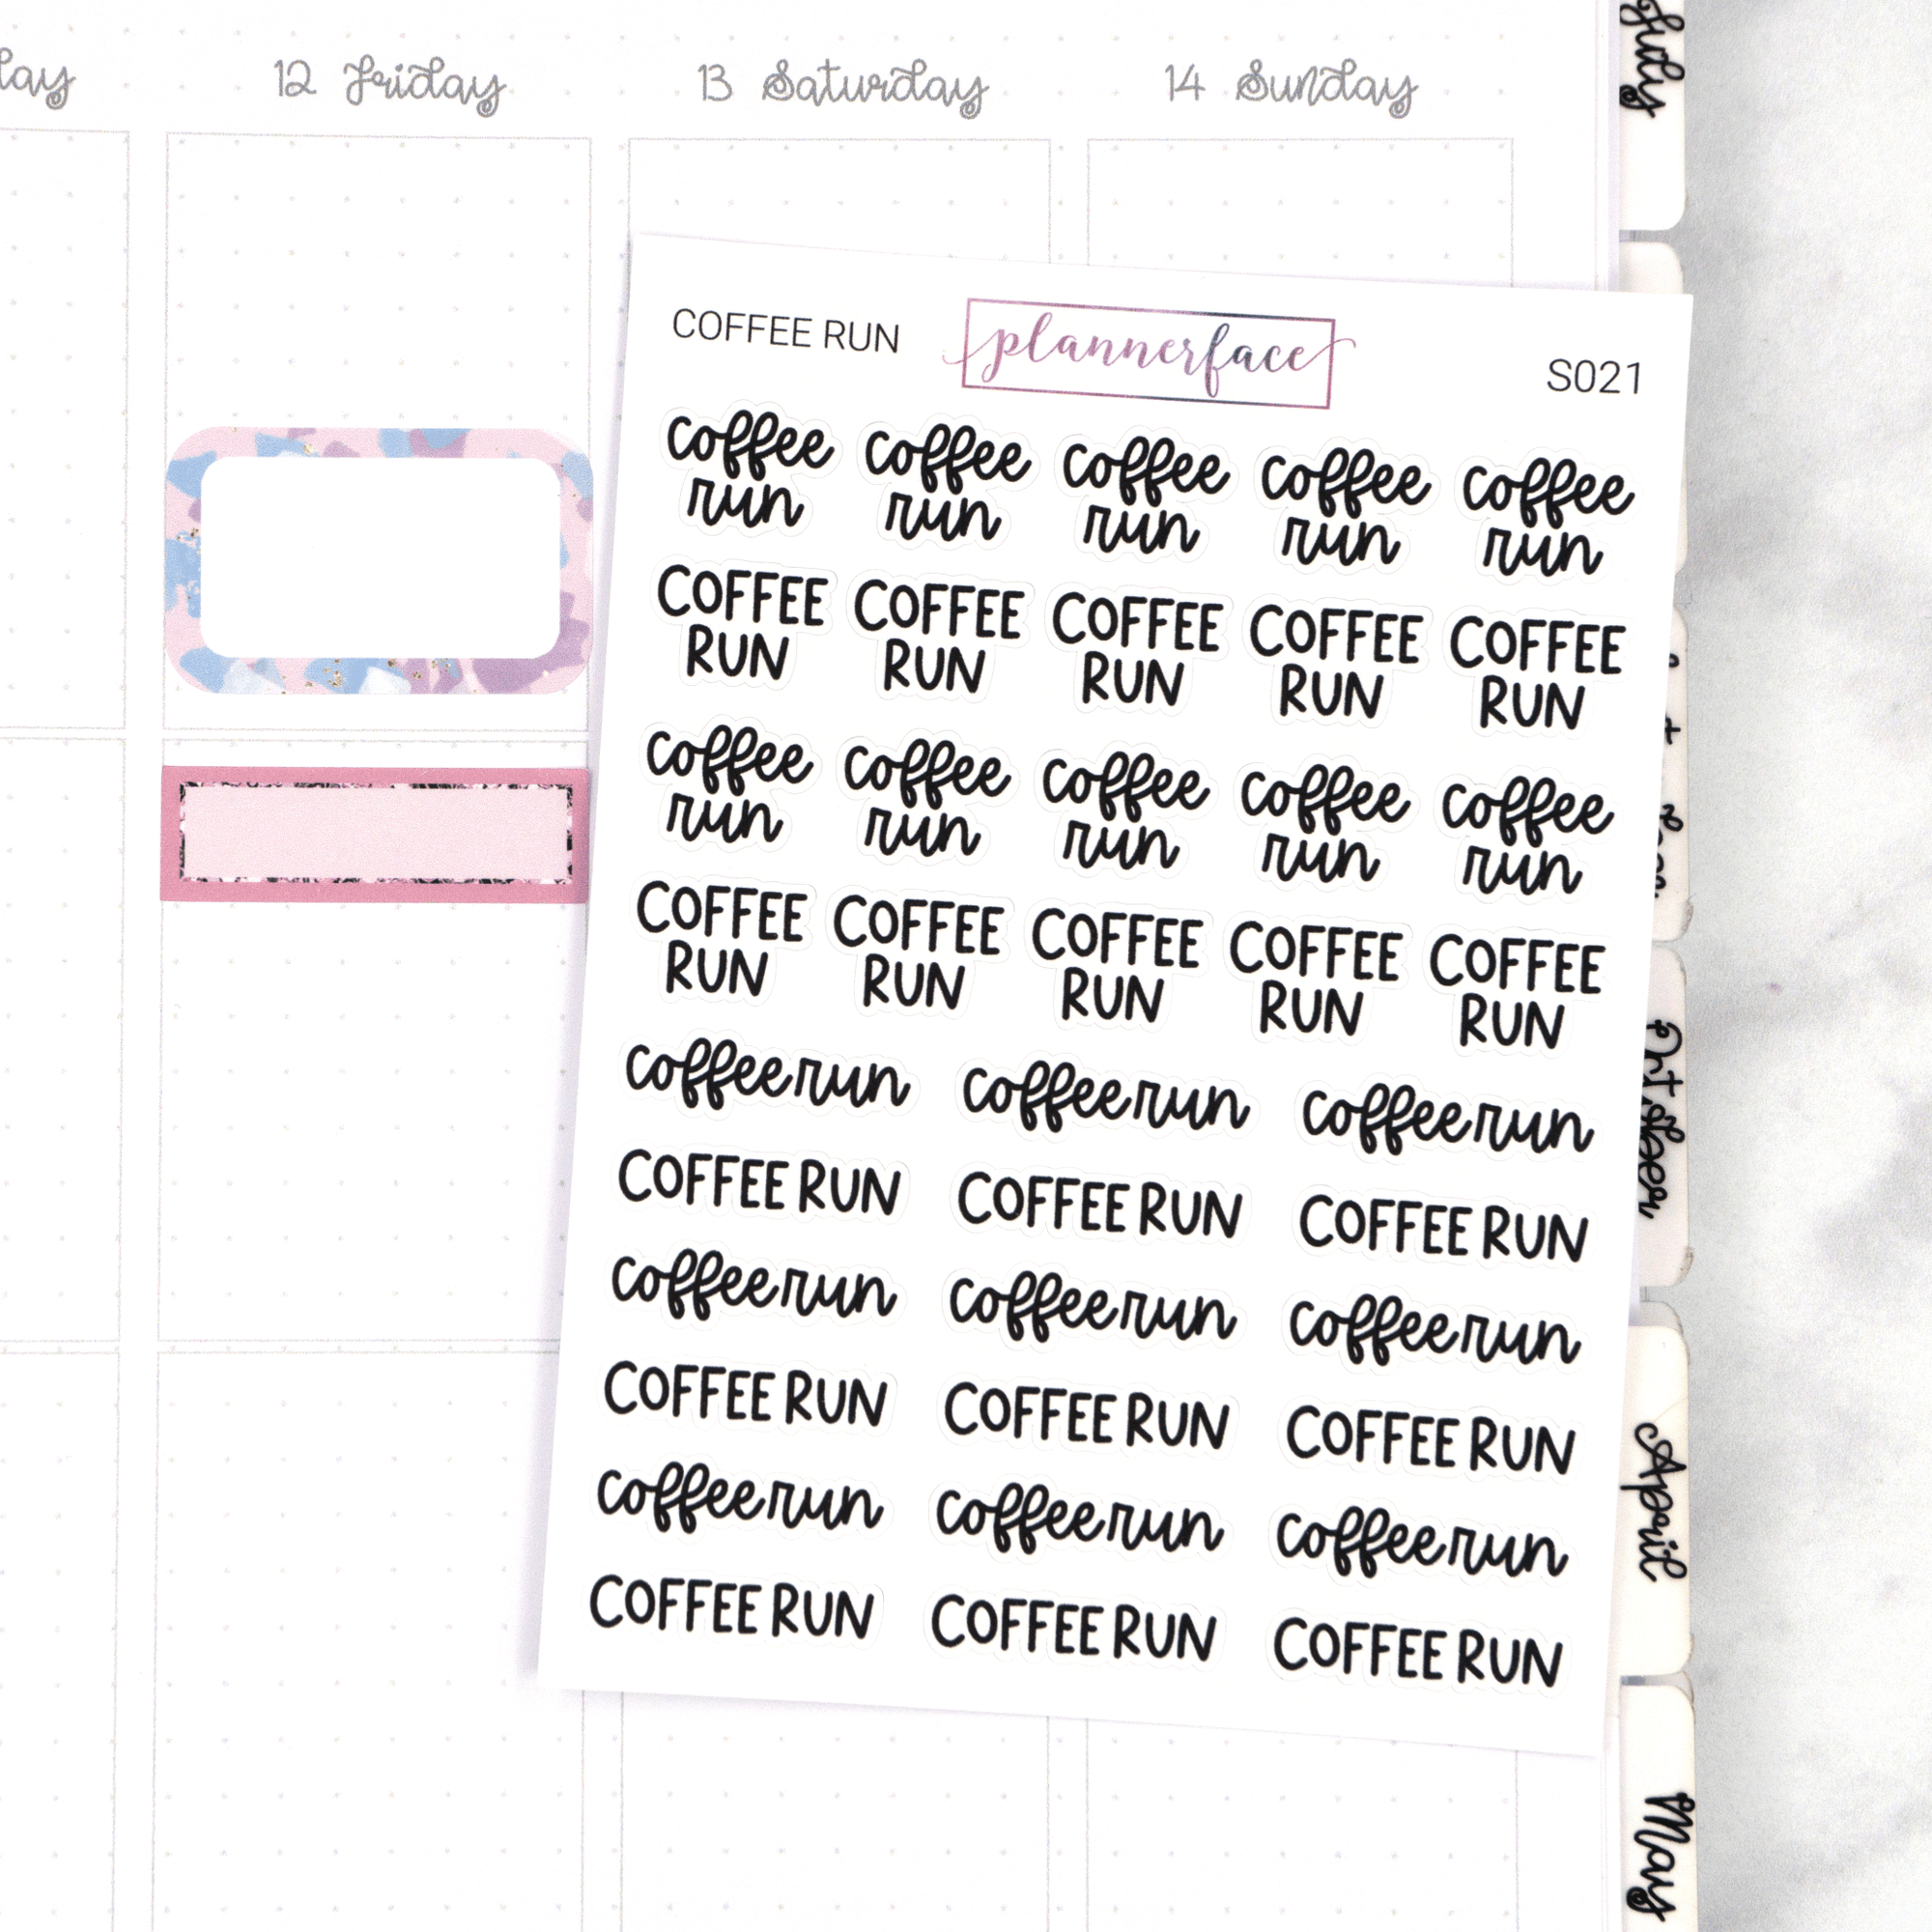 12 Friday 13 Saturday 14 Sunday
July
COFFEE RUN plannerface S021
coffee coffee coffee coffee coffee
run run run run run
COFFEE COFFEE COFFEE COFFEE COFFEE
RUN RUN RUN RUN RUN
coffee coffee coffee coffee coffee
run run run run run
COFFEE COFFEE COFFEE COFFEE COFFEE
RUN RUN RUN RUN RUN
coffee run coffee run coffee run
COFFEE RUN COFFEE RUN COFFEE RUN
coffee run coffee run coffee run
COFFEE RUN COFFEE RUN COFFEE RUN
coffee run coffee run coffee run
COFFEE RUN COFFEE RUN COFFEE RUN
April
May